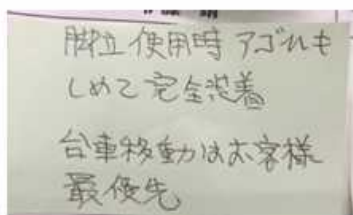 脚立使用時アゴヒモ
しめて完全装着
台車移動はお客様
最優先